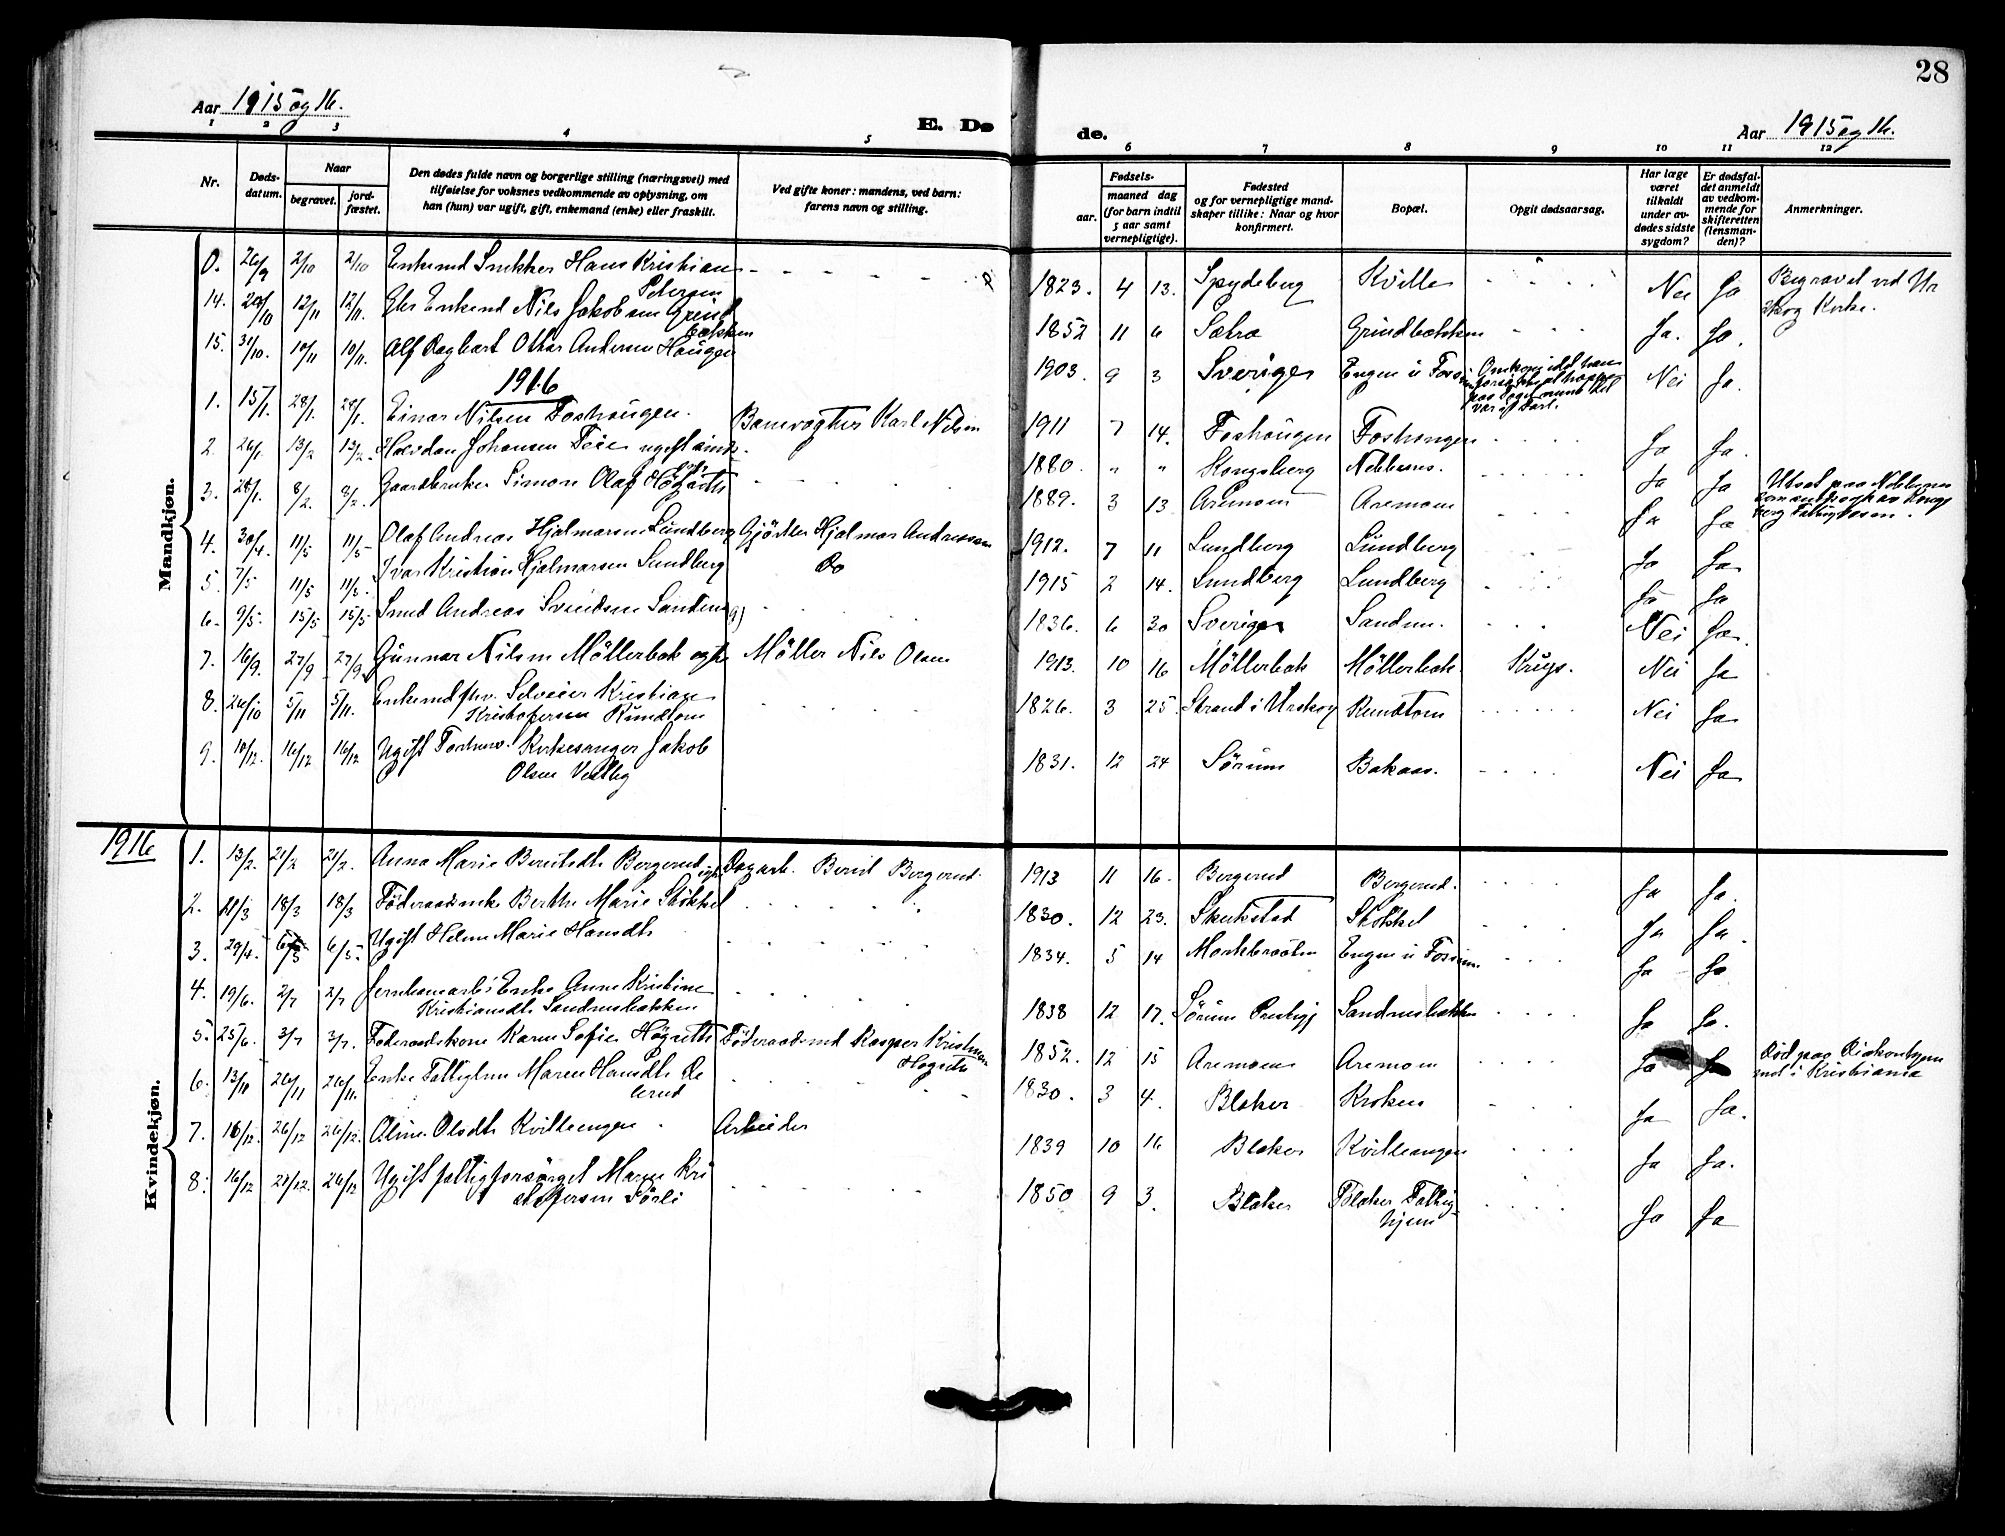 28
Aar 1915 og 16.
E. Dø
de.
Aar 1915 og 16.
1 2 3 4 5
6 7 8 9 10 11 12
Nr.
Døds-
datum.
Naar
begravet.
jord-
fæstet.
Den dødes fulde navn og borgerlige stilling (næringsvei) med
tilføielse for voksnes vedkommende av oplysning, om
han (hun) var ugift, gift, enkemand (enke) eller fraskilt.
Ved gifte koner: mandens, ved barn:
farens navn og stilling.
Fødsels-
aar.
maaned dag
(for barn indtil
5 aar samt
vernepligtige).
Fødested
og for vernepligtige mand-
skaper tillike: Naar og hvor
konfirmert.
Bopæl.
Opgit dødsaarsag.
Har læge
været
tilkaldt
under av-
dødes sidste
sygdom?
Er dødsfal-
det anmeldt
av vedkom-
mende for
skifteretten
(lensman-
den)?
Anmerkninger.
Mandkjøn.
0. 26/9 2/10 2/10 Enkemd Snekker Hans Kristian
Petersen
1823. 4 13. Spydeberg Kville Nei Ja Begravet ved Ur
skog Kirke.
14. 12/11 12/11. Enkemd Nils Jakobsen Grind
bækken
1852 11 6 Sætra Grindbækken Ja. Ja.
15. 31/10. 10/11 10/11. Alf Ragbart Othar Andersen Haugen
1903. 9 3 Sverige Engen i Fossum Nei Ja.
1916
1. 15/1. 28/1. 28/1. Einar Nilsen Foshaugen. Banevogter Karl Nilsen
1911 7 14. Foshaugen Foshaugen Ja Ja.
2. 26/1. 13/2 13/2. Halvdan Johansen Teie ugift
1880. " " Kongsberg Nebbenes. Ja Ja
3. 28/1. 8/2. 8/2. Gaardbruker Simon Olaf Høgseth
1889. 3 13 Aremom Aremom Ja Ja
4. 30/4. 11/5 11/5 Olaf Andreas Hjalmarsen Lundberg Gjørtler Hjalmar Andreassen
1912. 7 11 Lundberg Lundberg Ja Ja
5. 7/5 11/5 11/5. Ivar Kristian Hjalmarsen Lundberg Do
1915 2 14. Lundberg Lundberg Ja Ja
6. 9/5. 15/5 15/5 Smed Andreas Svendsen Sanden
1836. 6 30 Sverige Sanden. Nei Ja.
7. 16/9. 27/9 27/9 Gunnar Nilsen Møllerbak Møller Nils Olsen
1913. 10 16 Møllerbak Møllerbak. Nei Ja
8. 26/10 5/11 5/11. Enkemd fhv. Selveier Kristian
Kristofersen Rundtom
1826. 3 25. Strand i Urskog Rundtom Nei Ja
9. 10/12. 16/12 16/12 Ugift Forhenv. Kirkesanger Jakob
Olsen Vestby
1831. 12 24 Sørum Bakaas. Nei Ja
1916
Kvindekjøn.
1. 13/2. 21/2 21/2. Anna Marie Berntsdtr Bergerud Dagarb. Bernt Bergerud.
1913 11 16. Bergerud Bergerud. Ja Ja.
2. 11/3 18/3 18/3 Føderaadsenke Berthe Marie Støkkel
1830. 12 23. Støkkel Ja Ja.
3. 29/4. 6/5 6/5. Ugift Helene Marie Hansdtr
1834. 5 14 Engen i Fossum Ja Ja
4. 19/6. 2/7 2/7 Jernbanearb. Enke Anne Kristine
Kristiansdtr Sandnesbakken
1838 12 17. Sørum Prestegj Sandnesbakken Ja Ja.
5. 25/6. 3/7 3/7. Føderaadskone Karen Sofie Høgseth Føderaadsmd Kasper Kristiansen
Høgseth
1852. 12 15 Aremom Aremom Ja Ja Død paa Diakonhjem
met i Kristiania
6. 13/11 26/11 26/11. Enke Fattiglem Maren Hansdtr
1830. 3 4. Blaker Kroken Ja Ja.
7. 16/12. 26/12 26/12. Aline Olsdtr Kvilleengen. Arbeider
1839 10 16 Blaker Kvilleengen Ja Ja.
8. 16/12 21/12. 26/12 Ugift fattigforsørget Maren Kri
stofersen Sørli
1850 9 3. Blaker Blaker Fattig
hjem Ja Ja